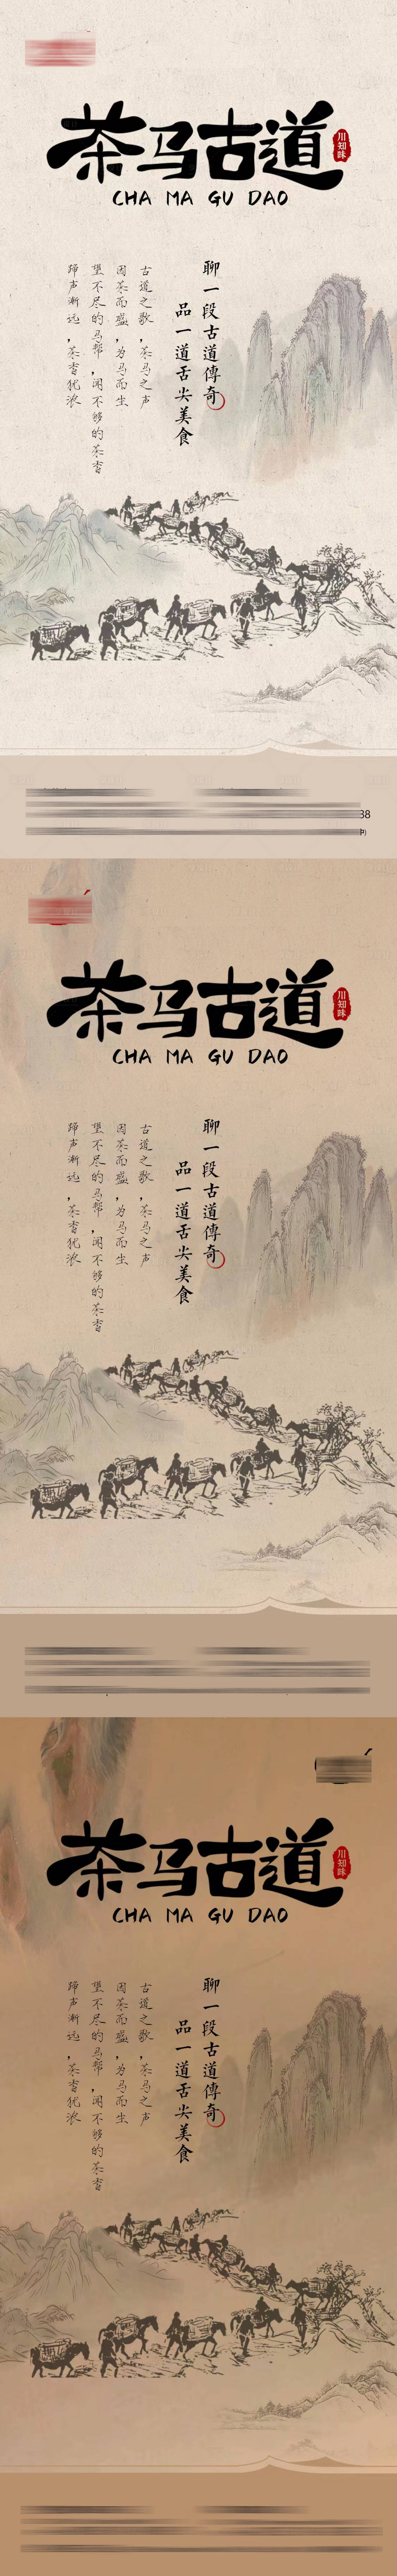 茶马古道
川知味
CHA MA GU DAO
聊一段古道傳奇
品一道舌尖美食
古道之歌，茶马之声
因茶而盛，为马而生
望不尽的马帮，闻不够的茶香
蹄声渐远，茶香犹浓
38
茶马古道
川知味
CHA MA GU DAO
聊一段古道傳奇
品一道舌尖美食
古道之歌，茶马之声
因茶而盛，为马而生
望不尽的马帮，闻不够的茶香
蹄声渐远，茶香犹浓
茶马古道
川知味
CHA MA GU DAO
聊一段古道傳奇
品一道舌尖美食
古道之歌，茶马之声
因茶而盛，为马而生
望不尽的马帮，闻不够的茶香
蹄声渐远，茶香犹浓